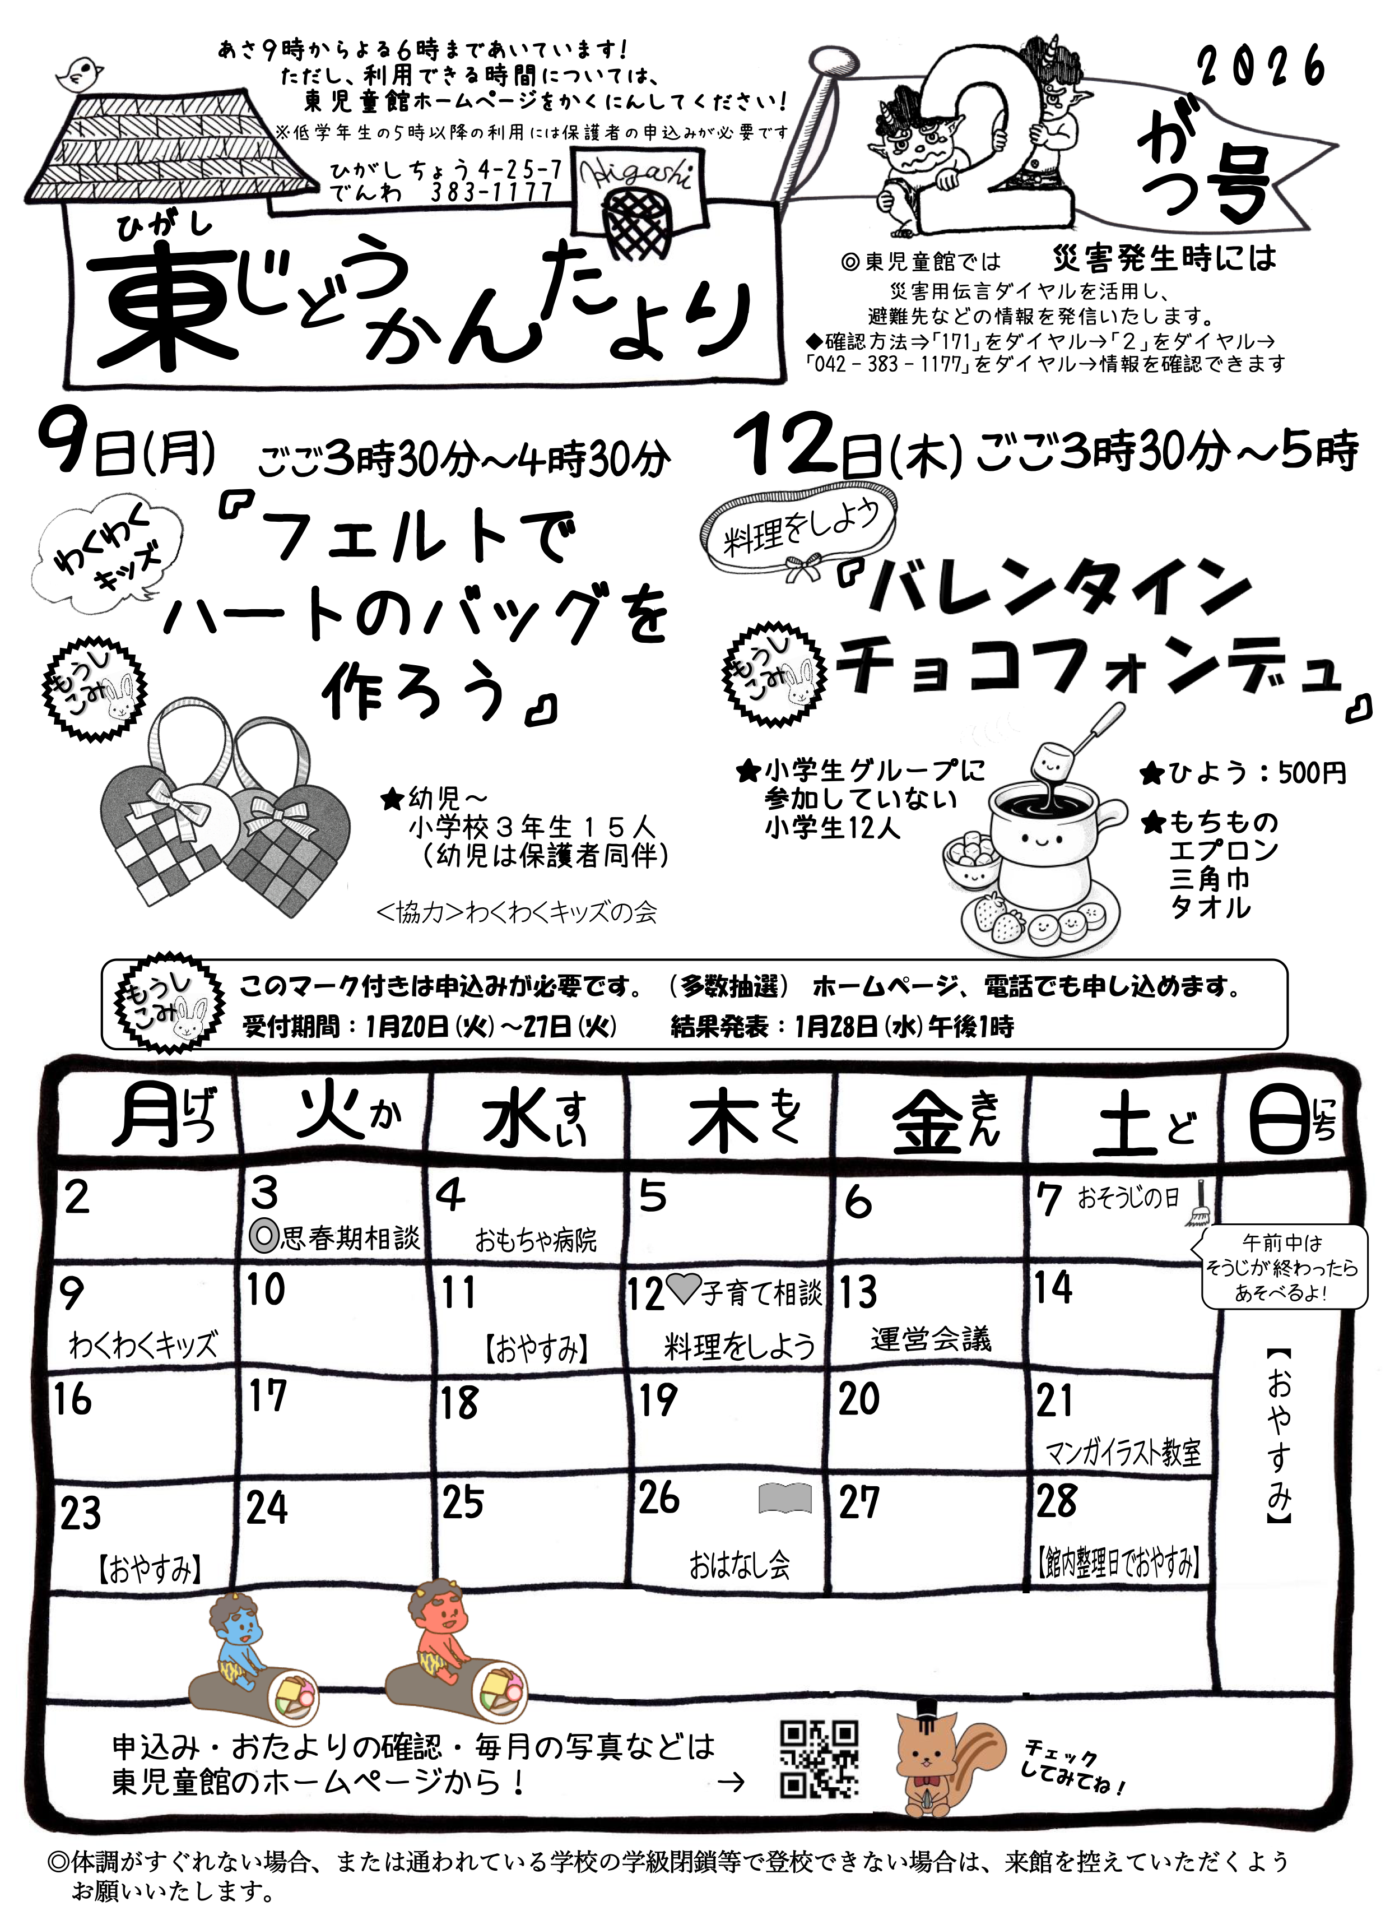 あさ9時からよる6時まであいています!
ただし、利用できる時間については、
東児童館ホームページをかくにんしてください!
※低学年生の5時以降の利用には保護者の申込みが必要です
ひがしちょう4-25-7
でんわ 383-1177
Higashi
ひがし
東じどうかんたより
2026
2がつ号
◎東児童館では 災害発生時には
災害用伝言ダイヤルを活用し、
避難先などの情報を発信いたします。
◆確認方法⇒「171」をダイヤル→「2」をダイヤル→
「042-383-1177」をダイヤル→情報を確認できます
9日(月) ごご3時30分~4時30分
わくわく
キッズ
『フェルトで
ハートのバッグを
作ろう』
もうし
こみ
★幼児~
小学校3年生15人
(幼児は保護者同伴)
<協力>わくわくキッズの会
12日(木) ごご3時30分~5時
料理をしよう
『バレンタイン
チョコフォンデュ』
もうし
こみ
★小学生グループに
参加していない
小学生12人
★ひよう:500円
★もちもの
エプロン
三角巾
タオル
もうし
こみ
このマーク付きは申込みが必要です。(多数抽選) ホームページ、電話でも申し込めます。
受付期間:1月20日(火)~27日(火) 結果発表:1月28日(水)午後1時
月げつ 火か 水すい 木もく 金きん 土ど 日にち
2 3 4 5 6 7 おそうじの日
◎思春期相談 おもちゃ病院
午前中は
そうじが終わったら
あそべるよ!
9 10 11 12 子育て相談 13 14
わくわくキッズ 【おやすみ】 料理をしよう 運営会議
【おやすみ】
16 17 18 19 20 21
マンガイラスト教室
23 24 25 26 27 28
【おやすみ】 おはなし会 【館内整理日でおやすみ】
申込み・おたよりの確認・毎月の写真などは
東児童館のホームページから! →
チェック
してみてね!
◎体調がすぐれない場合、または通われている学校の学級閉鎖等で登校できない場合は、来館を控えていただくよう
お願いいたします。